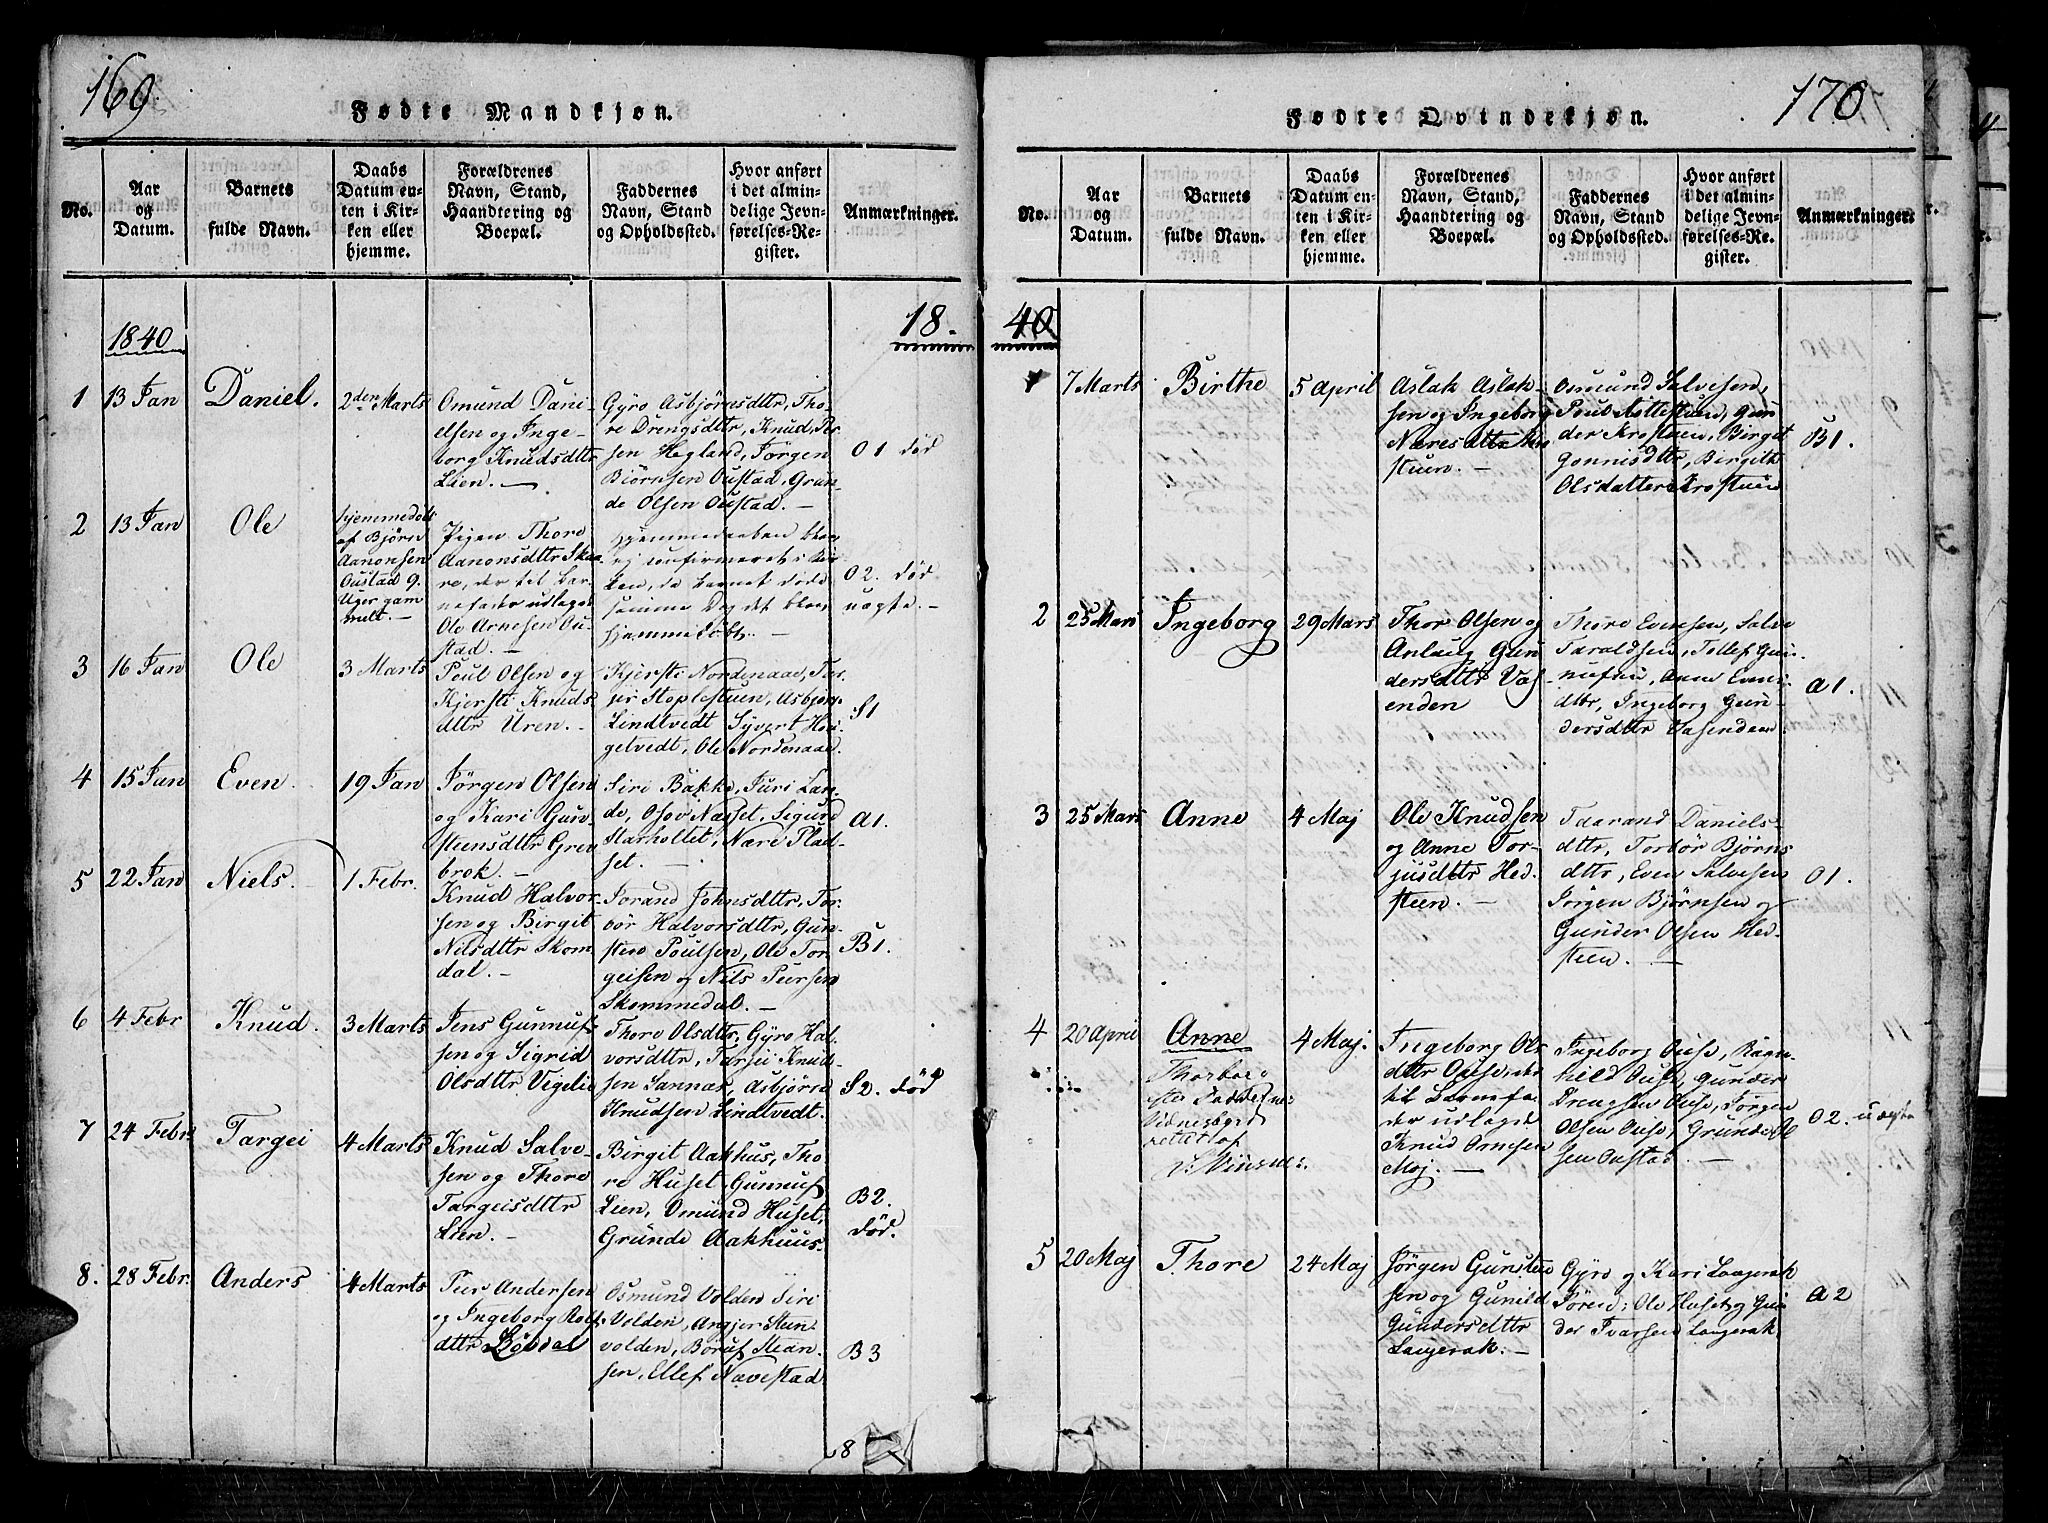 169
Fødte Mandkjøn.
No.
Aar
og
Datum.
Barnets
fulde Navn.
Daabs
Datum en-
ten i Kir-
ken eller
hjemme.
Forældrenes
Navn, Stand,
Haandtering og
Boepæl.
Faddernes
Navn, Stand
og Opholdssted.
Hvor anført
i det almin-
delige Jevn-
førelses-Re-
gister.
Anmærkninger.
18.
1840
1
13 Jan
Daniel.
2den Marts
Omund Dani-
elsen og Inge-
borg Knudsdttr
Lien. —
Gyro Asbjørnsdttr, Tho-
re Drengsdttr, Knud Per-
sen Hegland, Jørgen
Biørnsen Oustad, Grun-
de Olsen Oustad. —
O 1 død
2
13 Jan
Ole
Hjemmedøbt
af Bjørn
Aanonsen
Oustad 9
Uger gam
melt. —
Pigen Thore
Aanonsdttr Skaa-
re, der til Bar-
nefader udlagde
Ole Arnesen Ou-
stad. —
Hjemmedaaben blev
ej confirmeret i Kir-
ken, da Barnet døde
samme Dag det blev
hjemmedøbt. —
O2. død
uægte. —
3
16 Jan
Ole
3 Marts
Poul Olsen og
Kjersti Knuds-
dttr Uren. —
Kjersti Nordenaae, Tar-
jer Stoplestuen, Asbjørn
Lindtvedt Syvert Hou-
getvedt, Ole Nordenaae.
S1
4
15 Jan
Even
19 Jan
Jørgen Olsen
og Kari Gun-
steensdttr Grev
brok. —
Siri Bakke, Juri Lan-
de, Osov Næsset, Sigurd
Starholtet, Nære Plad-
set. —
A1.
5
22 Jan
Niels.
1 Febr.
Knud Halvor-
sen og Birgit
Nilsdttr Skom-
dal. —
Torand Johnsdttr, Tor-
bør Halvorsdttr, Gun-
stero Poulsen, Ole Tor-
geisen og Nils Peersen
Skommedal. —
B1.
6
4 Febr
Knud.
3 Marts
Jens Gunnuf-
sen og Sigrid
Olsdttr Vigelie
Thoro Olsdttr, Gyro Hal-
vorsdttr, Tarjei Knud-
sen Sannæs, Asbjørn
Knudsen Lindtvedt.
S2. død
7
24 Febr.
Targei
4 Marts
Knud Salve-
sen og Thore
Targeisdttr
Lien. —
Birgit Aakhus, Tho-
re Huset, Gunnuf
Lien, Omund Huset,
Grunde Aakhuus.
B2.
død.
8.
28 Febr.
Anders
4 Marts
Peer Andersen
og Ingeborg Rolfs-
dttr Løbdal
Osmund Volden Siri
Volden, Angjer Steen
volden, Børuf Stean-
sen, Ellef Navestad.
B 3
8
170
Fødte Qvindekjøn.
No.
Aar
og
Datum.
Barnets
fulde Navn.
Daabs
Datum en-
ten i Kir-
ken eller
hjemme.
Forældrenes
Navn, Stand,
Haandtering og
Boepæl.
Faddernes
Navn, Stand
og Opholdssted.
Hvor anført
i det almin-
delige Jevn-
førelses-Re-
gister.
Anmærkninger.
40
1
7 Marts
Birthe
5 April
Aslak Aslak-
sen og Ingeborg
Næresdttr Kro
stuen. —
Osmund Salvesen,
Poul Kittestund, Gun
der Krostuen, Birgit
Gonnisdttr, Birgith
Olsdatter Krostuen
B1.
2
25 Mars
Ingeborg
29 Mars
Thor Olsen og
Anlaug Gun
dersdttr Vas-
enden
Thoro Evensen, Salve
Taraldsen, Tollef Gun-
nufsen, Anne Evens
dttr, Ingeborg Gun-
dersdttr Vasenden.
A1.
3
25 Mars
Anne
4 Maj
Ole Knudsen
og Anne Tor-
jusdttr Hed-
steen. —
Taarand Daniels-
dttr, Torbør Bjørns
dttr, Even Salvesen
Jørgen Bjørnsen og
Gunder Olsen Hed-
steen. —
O1.
4
20 April
Anne
Thorborg
efter Faddernes
Vidnesbyrd
rettet af
4 Maj.
Ingeborg Ols-
dttr Ouse, der
til Barnefa-
der udlagde
Knud Arnesen
Moj. —
Ingeborg Ouse, Ragn-
hild Ouse, Gunder
Drengsen Ouse, Jørgen
Olsen Ouse, Grunde Ol
sen Oustad. —
O2. uægte
5
20 Maj
Thore
24 Maj
Jørgen Gunsteen
sen og Gunild
Gundersdttr
Langerak. —
Gyro og Kari Langerak
Søren, Ole Huset og Gun
der Ivarsen Langerak.
A 2